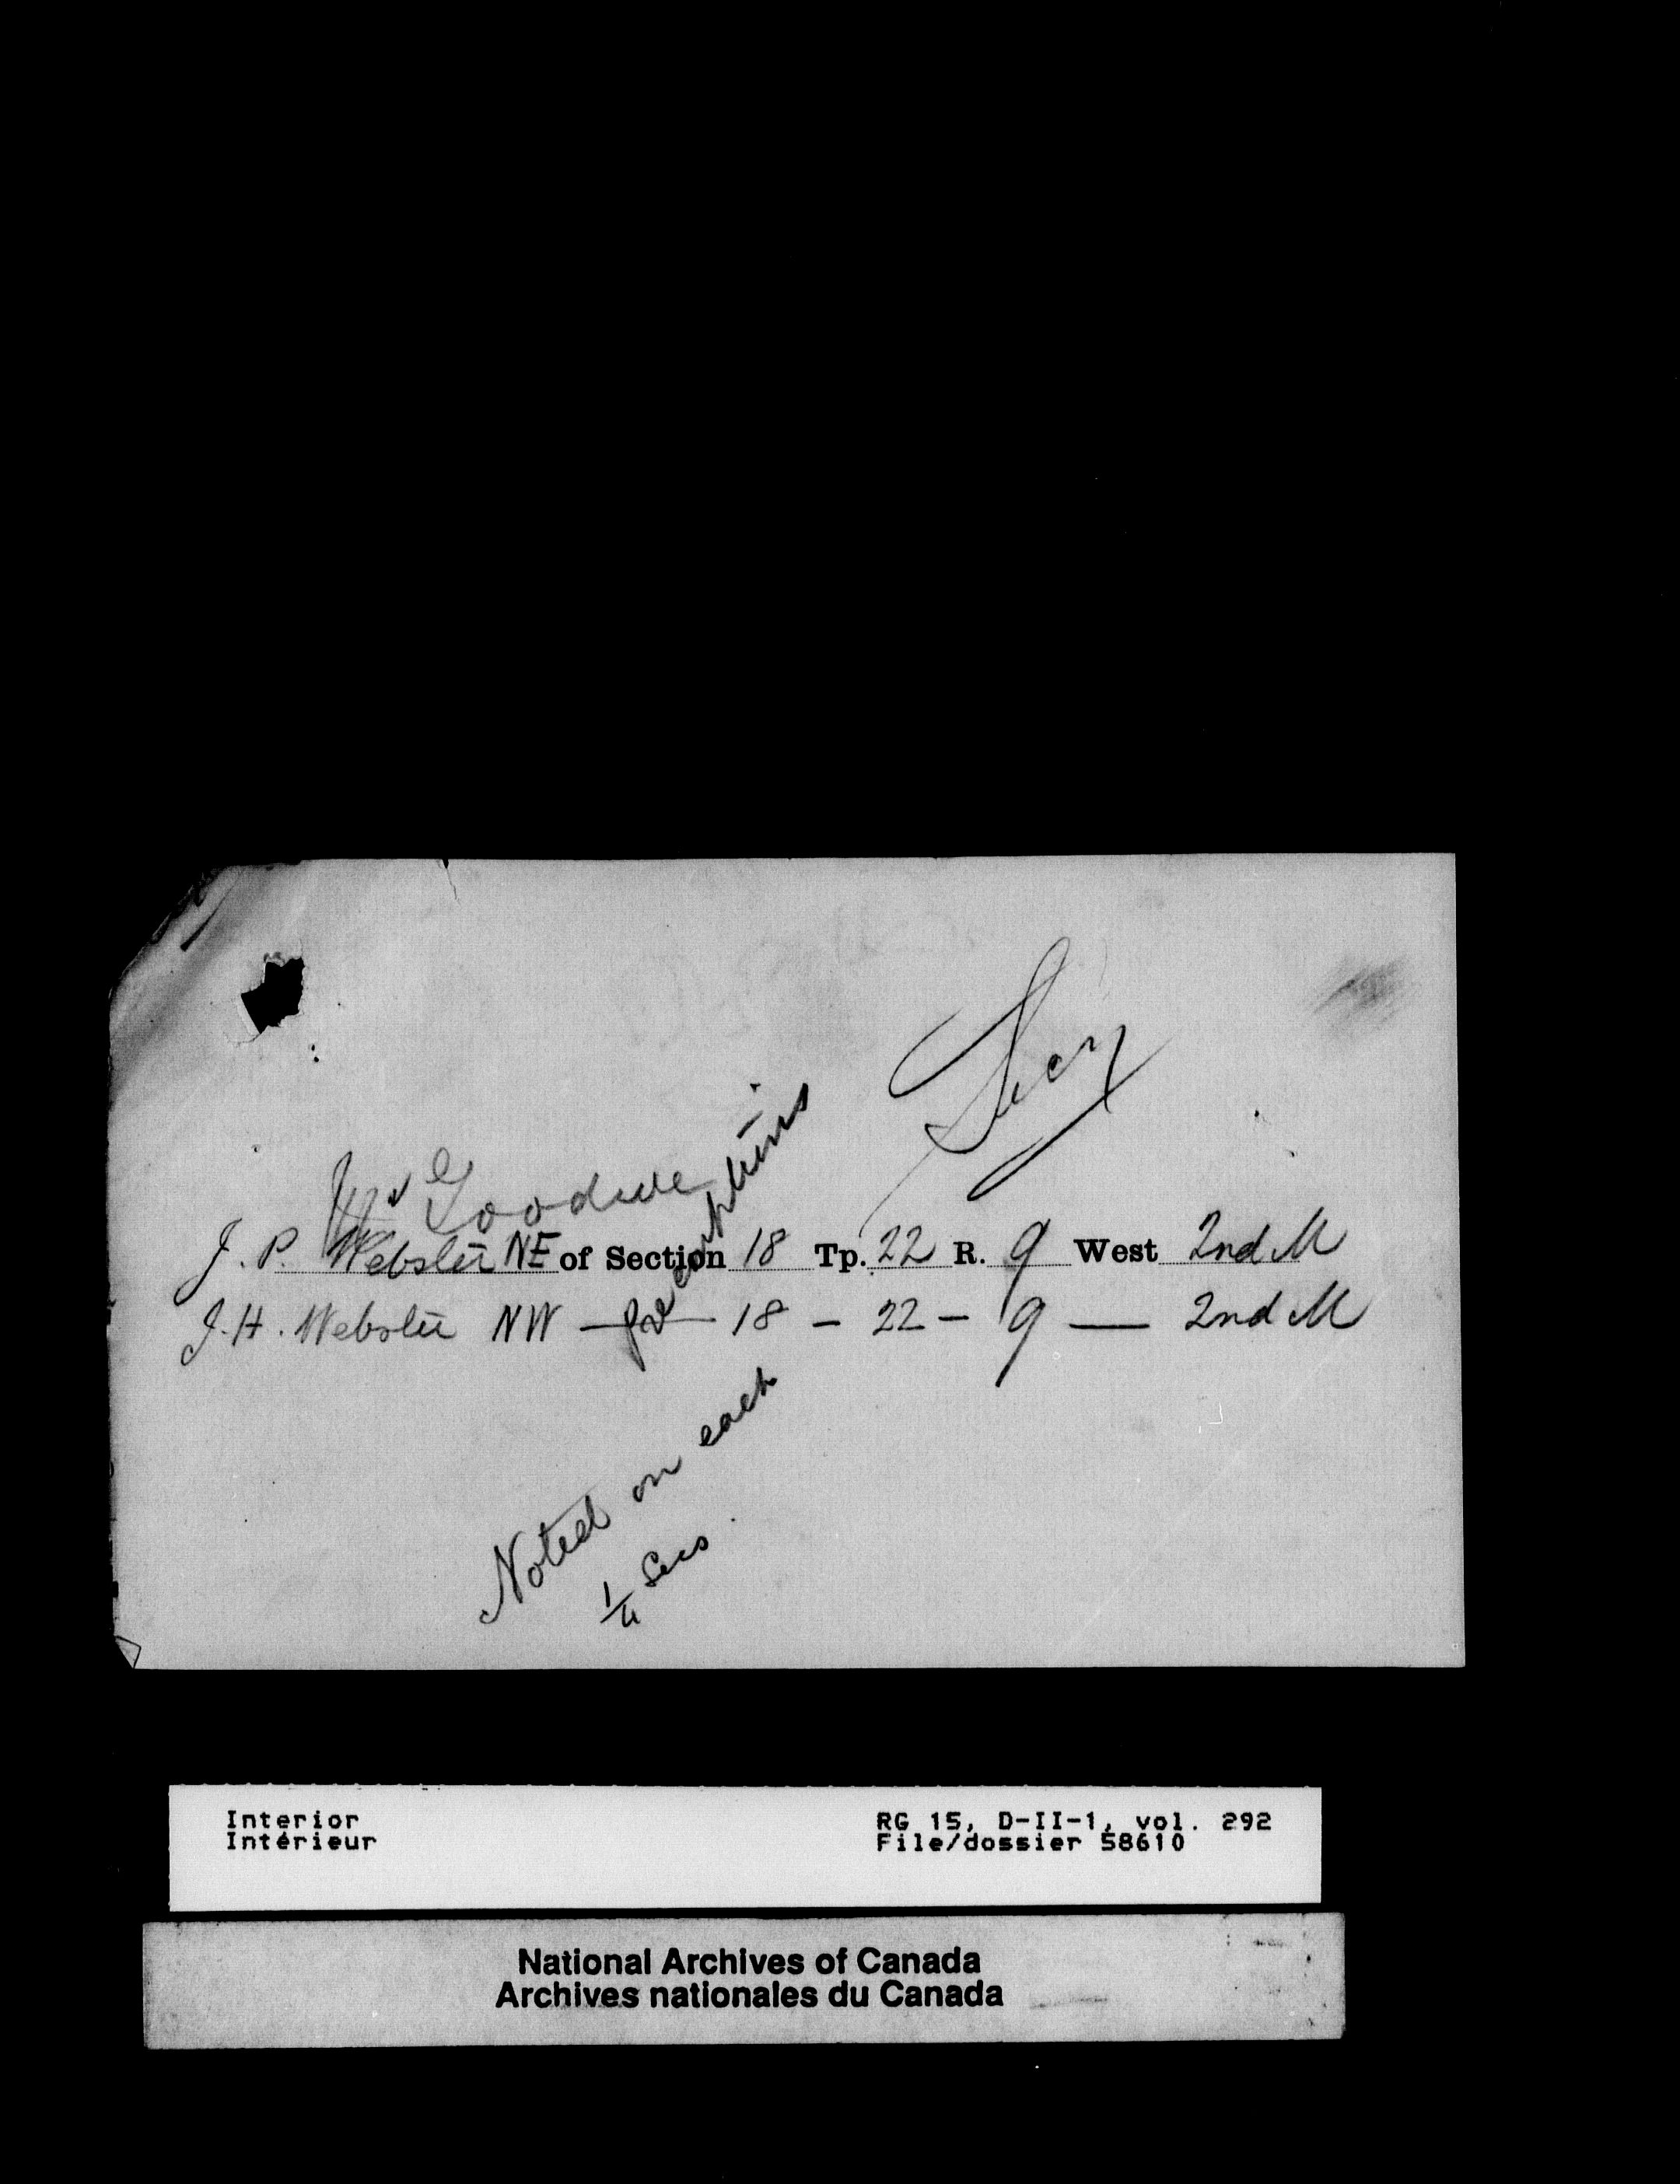 Secy
Mr Goodeve
J. P. Webster NE of Section 18 Tp. 22 R. 9 West 2nd M
J. H. Webster NW — 18 — 22 — 9 — 2nd M
preemptions
Noted on each
1/4 Secs.
Interior
Intérieur
RG 15, D-II-1, vol. 292
File/dossier 58610
National Archives of Canada
Archives nationales du Canada